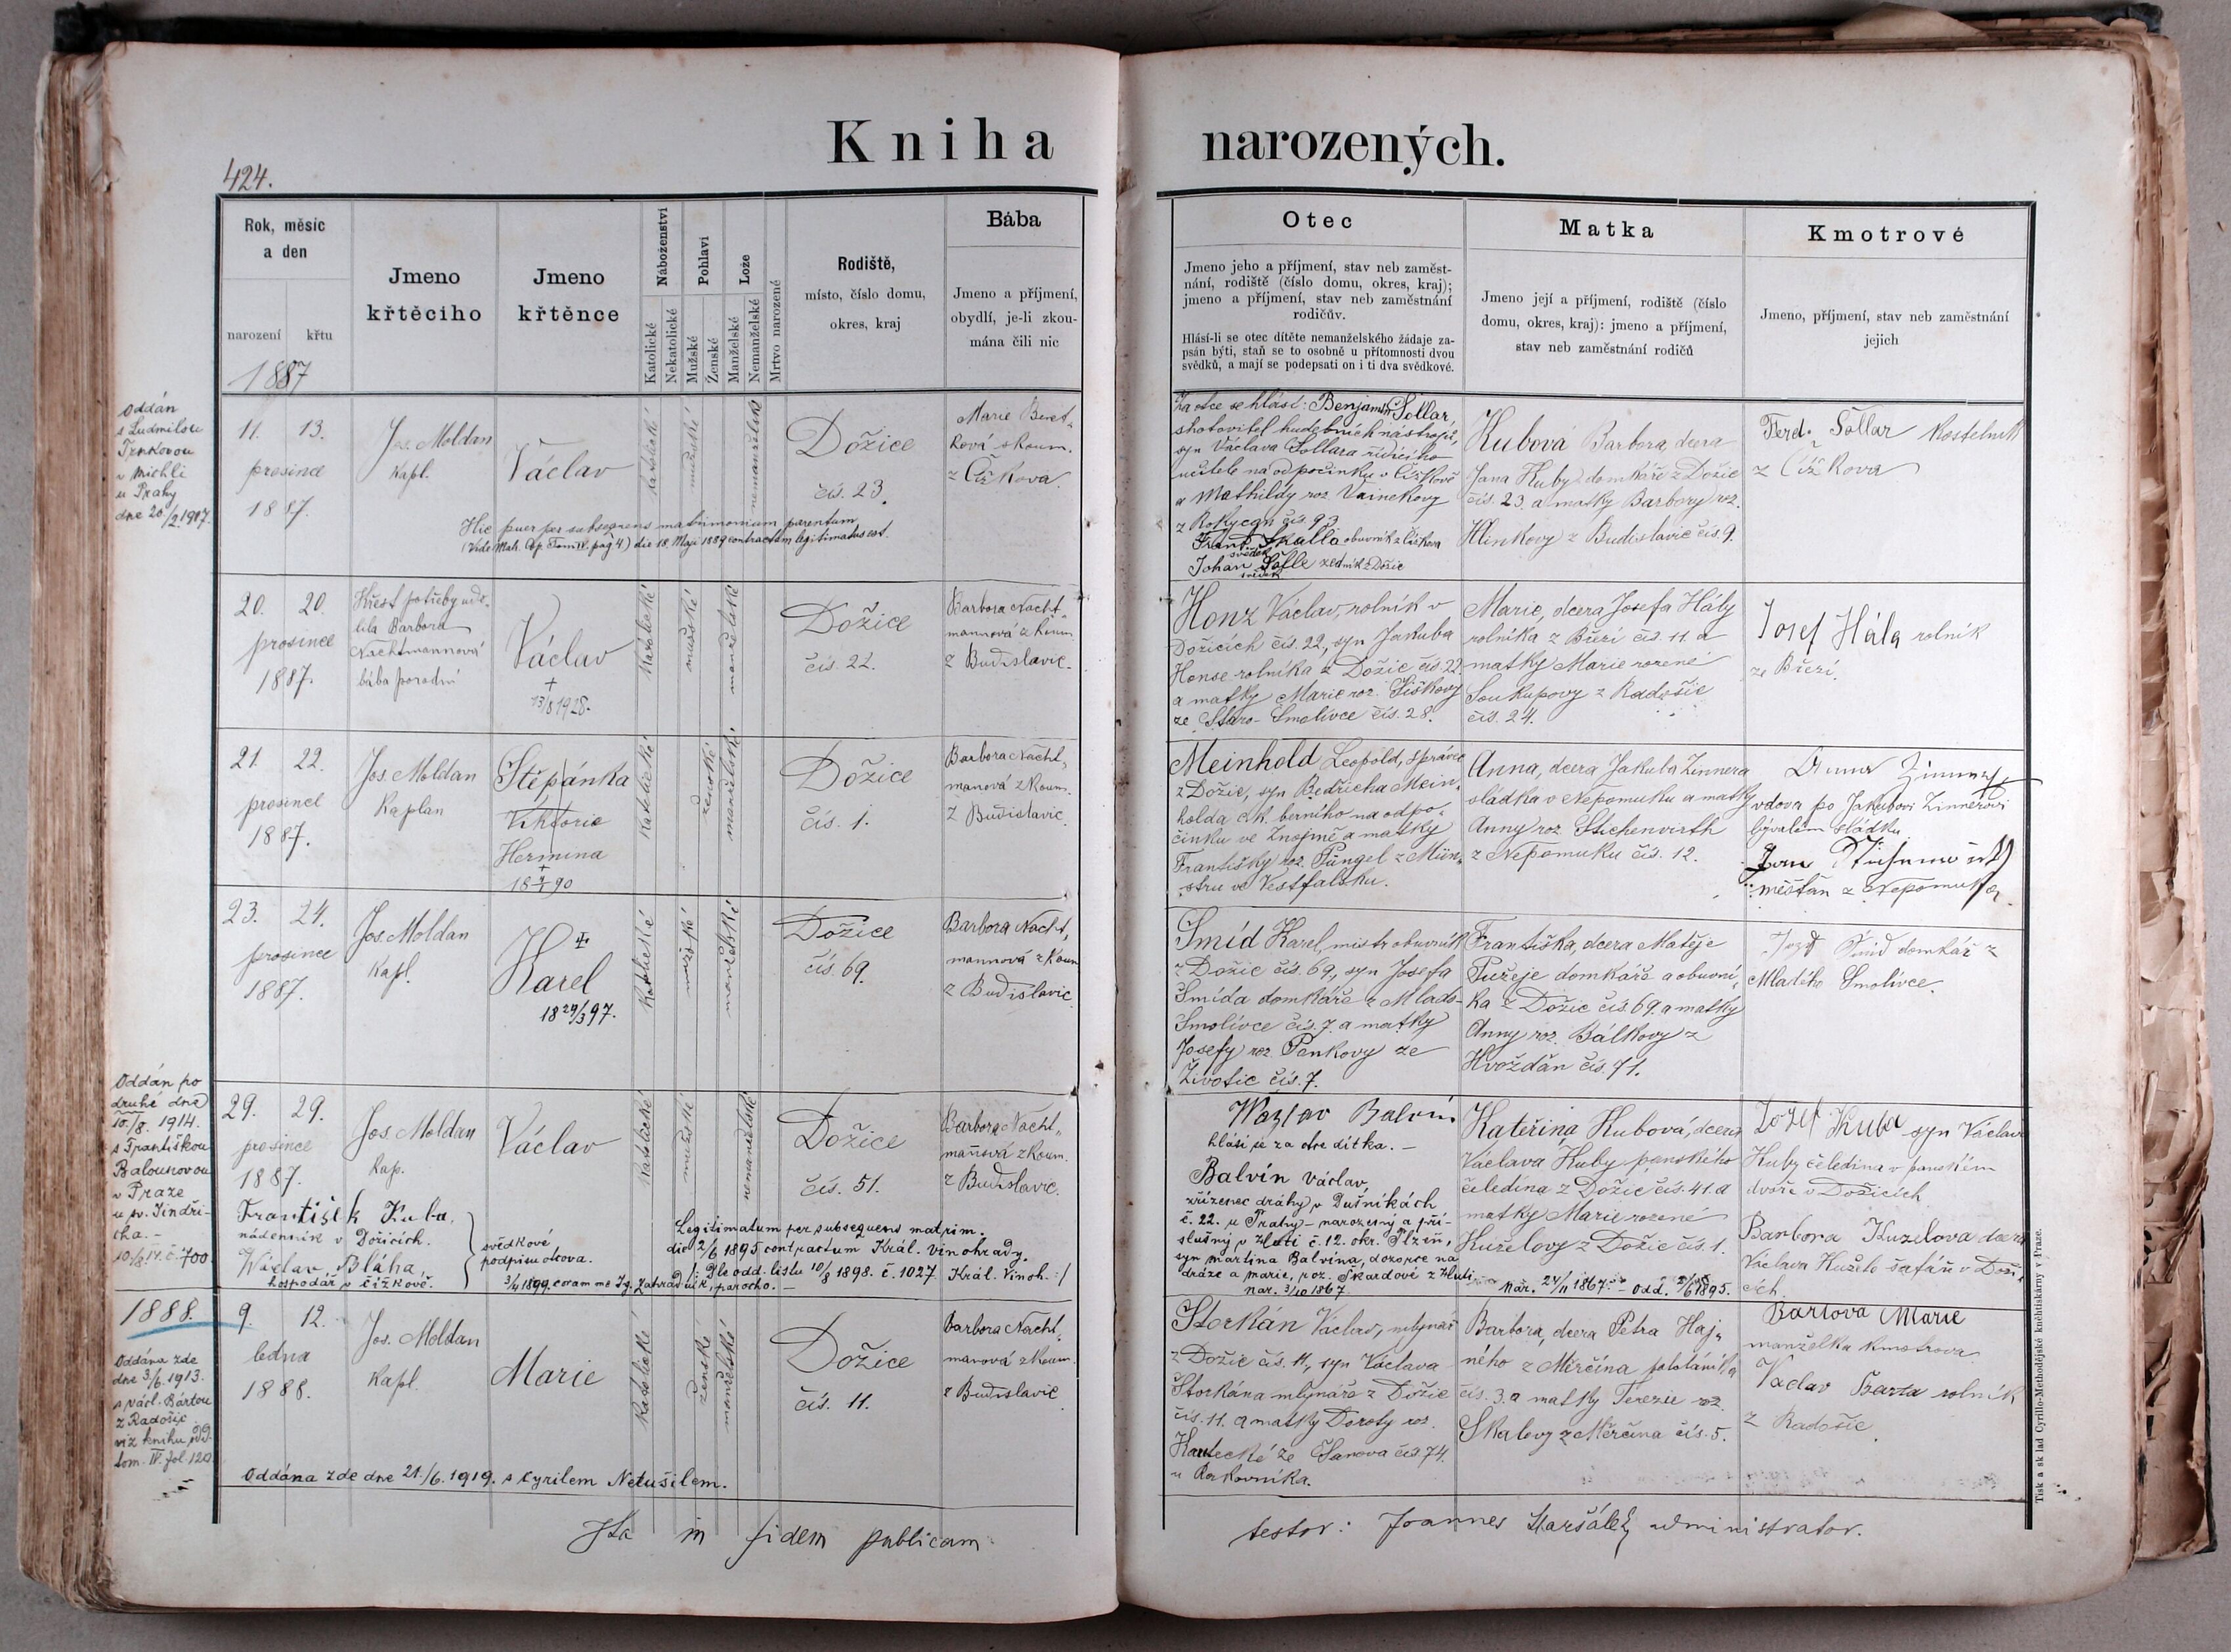 424.
Kniha narozených.
Rok, měsíc
a den
narození
křtu
1887
Jmeno
křtěcího
Jmeno
křtěnce
Náboženství
Katolické
Nekatolické
Pohlaví
Mužské
Ženské
Lože
Manželské
Nemanželské
Mrtvo narozené
Rodiště,
místo, číslo domu,
okres, kraj
Bába
Jmeno a příjmení,
obydlí, je-li zkou-
mána čili nic
Otec
Jmeno jeho a příjmení, stav neb zaměst-
nání, rodiště (číslo domu, okres, kraj);
jmeno a příjmení, stav neb zaměstnání
rodičův.
Hlásí-li se otec dítěte nemanželského žádaje za-
psán býti, staň se to osobně u přítomnosti dvou
svědků, a mají se podepsati on i ti dva svědkové.
Matka
Jmeno její a příjmení, rodiště (číslo
domu, okres, kraj): jmeno a příjmení,
stav neb zaměstnání rodičů
Kmotrové
Jmeno, příjmení, stav neb zaměstnání
jejich
Oddán
s Ludmilou
Trnkovou
v Michli
u Prahy
dne 20/2 1917.
11. 13.
prosince
1887.
Jos. Moldan
kapl.
Václav
katolické
mužské
nemanželské
Dožice
čís. 23.
Marie
ková zkoum.
z Čížkova.
Hic puer per subsequens matrimonium parentum
(Vide Matr. Cop. Tom IV. pag 4) die 18. Maji 1889 contractum legitimatus est.
Za otce se hlásí: Benjamin Šollar,
zhotovitel hudebních nástrojů,
syn Václava Šollara řídícího
učitele na odpočinku v Čížkově
a Mathildy roz. Vainekovy
z Rokycan čís 93
Frant. Skalla obuvník z Čížkova
svědek
Johan Šafle zedník z Dožic
svědek
Kubová Barbora, dcera
Jana Kuby domkáře z Dožic
čís. 23. a matky Barbory roz.
Hlinkovy z Budislavic čís. 9.
Ferd. Šollar kostelník
z Čížkova
20. 20.
prosince
1887.
Křest potřeby udě-
lila Barbora
Nachtmannová
bába porodní
Václav
+
13/8 1928.
Katolické
mužské
manželské
Dožice
čís. 22.
Barbora Nacht-
mannová zkoum.
z Budislavic.
Honz Václav, rolník v
Dožicích čís. 22., syn Jakuba
Honse rolníka z Dožic čís 22.
a matky Marie roz. Šiškovy
ze Staro-Smolivce čís. 28.
Marie, dcera Josefa Hály
rolníka z Březí čís. 11 a
matky Marie rozené
Soukupovy z Radošic
čís. 24.
Josef Hála rolník
ze Březí.
21. 22.
prosince
1887.
Jos. Moldan
kaplan
Štěpánka
Viktorie
Hermina
+
Katolické
ženské
manželské
Dožice
čís. 1.
Barbora Nacht-
manová zkoum.
z Budislavic.
Meinhold Leopold, správce
z Dožic, syn Bedřicha Mein-
holda c. k. berního na odpo-
činku ve Znojmě a matky
Františky roz. Püngel z Mün-
stru ve Vestfalsku.
Anna, dcera Jakuba Zinnera
sládka v Nepomuku a matky
Anny roz. Stichenwirth
z Nepomuku čís. 12.
Anna Zinner
vdova po Jakubovi Zinnerovi
bývalém sládku
měšťan z Nepomuka
23. 24.
prosince
1887.
Jos. Moldan
kapl.
Karel
18 29/3 97.
Katolické
mužské
manželské
Dožice
čís. 69.
Barbora Nacht-
mannová zkoum
z Budislavic.
Šmíd Karel, mistr obuvník
z Dožic čís. 69., syn Josefa
Šmída domkáře z Mlado-
Smolivce čís. 7. a matky
Josefy roz. Pankovy ze
Životic čís. 7.
Františka, dcera Matěje
Pužeje domkáře a obuvní-
ka z Dožic čís. 69. a matky
Anny roz. Bálkovy z
Hvožďan čís. 71.
Josef Šmíd domkář z
Mladého Smolivce.
Oddán po
druhé dne
10./8. 1914.
s Františkou
Balounovou
v Praze
u sv. Jindři-
cha. -
10/8. 14. č. 700
29. 29.
prosince
1887.
Jos Moldan
kap.
Václav
Katolické
mužské
nemanželské
Dožice
čís. 51.
Barbora Nacht-
mannová zkoum.
z Budislavic.
František Kuba,
nádenník v Dožicích.
Václav Bláha,
hospodář v Čížkově.
svědkové
podpisu otcova.
Legitimatum per subsequens matrim.
die 2/6 1895 contractum Král. vinohrady.
/: Dle odd. listu 10/8 1898. č. 1027 Král. Vinoh. :/
3/4 1899. coram me Ig. Zahradník, parocho. -
Waclav Balvín
hlásí se za otce dítka. -
Balvín Václav,
zřízenec dráhy v Dušníkách
č. 22. u Prahy - narozený a pří-
slušný v Zhoti č. 12. okr. Plzeň,
syn Martina Balvína, dozorce na
dráze a Marie, roz. Škardové z Zhoti
nar. 3/10 1867
Kateřina Kubová, dcera
Václava Kuby panského
čeledína z Dožic čís. 41. a
matky Marie rozené
Kuželovy z Dožic čís. 1.
nar. 24/11 1867. - odd. 2/6 1895.
Josef Kuba syn Václava
Kuby čeledína v panském
dvoře v Dožicích
Barbora Kuzelova dcera
Václava Kužele šafáře v Doži-
cích.
1888.
Oddána zde
dne 3/6. 1913.
s václ. Bártou
z Radošic
viz knihu odd.
tom. IV. fol. 120
9. 12.
ledna
1888.
Jos. Moldan
kapl.
Marie
Katolické
ženské
manželské
Dožice
čís. 11.
Barbora Nacht-
manová zkoum.
z Budislavic
Oddána zde dne 21./6. 1919. s Cyrilem Netušilem.
Štorkán Václav, mlynář
z Dožic čís. 11., syn Václava
Štorkána mlynáře z Dožic
čís. 11. a matky Doroty roz.
ze Šanova čís 74.
u Rakovníka.
Barbora, dcera Petra Haj-
ného z Měrčína pololáníka
čís. 3. a matky Terezie roz.
Skalovy z Měrčína čís. 5.
Bartova Marie
manželka kmotrova
Vaclav Barta rolník
z Radošic.
Ita in fidem publicam testor: Joannes Maršálek administrator.
Tisk a sklad Cyrillo-Methodějské knihtiskárny v Praze.